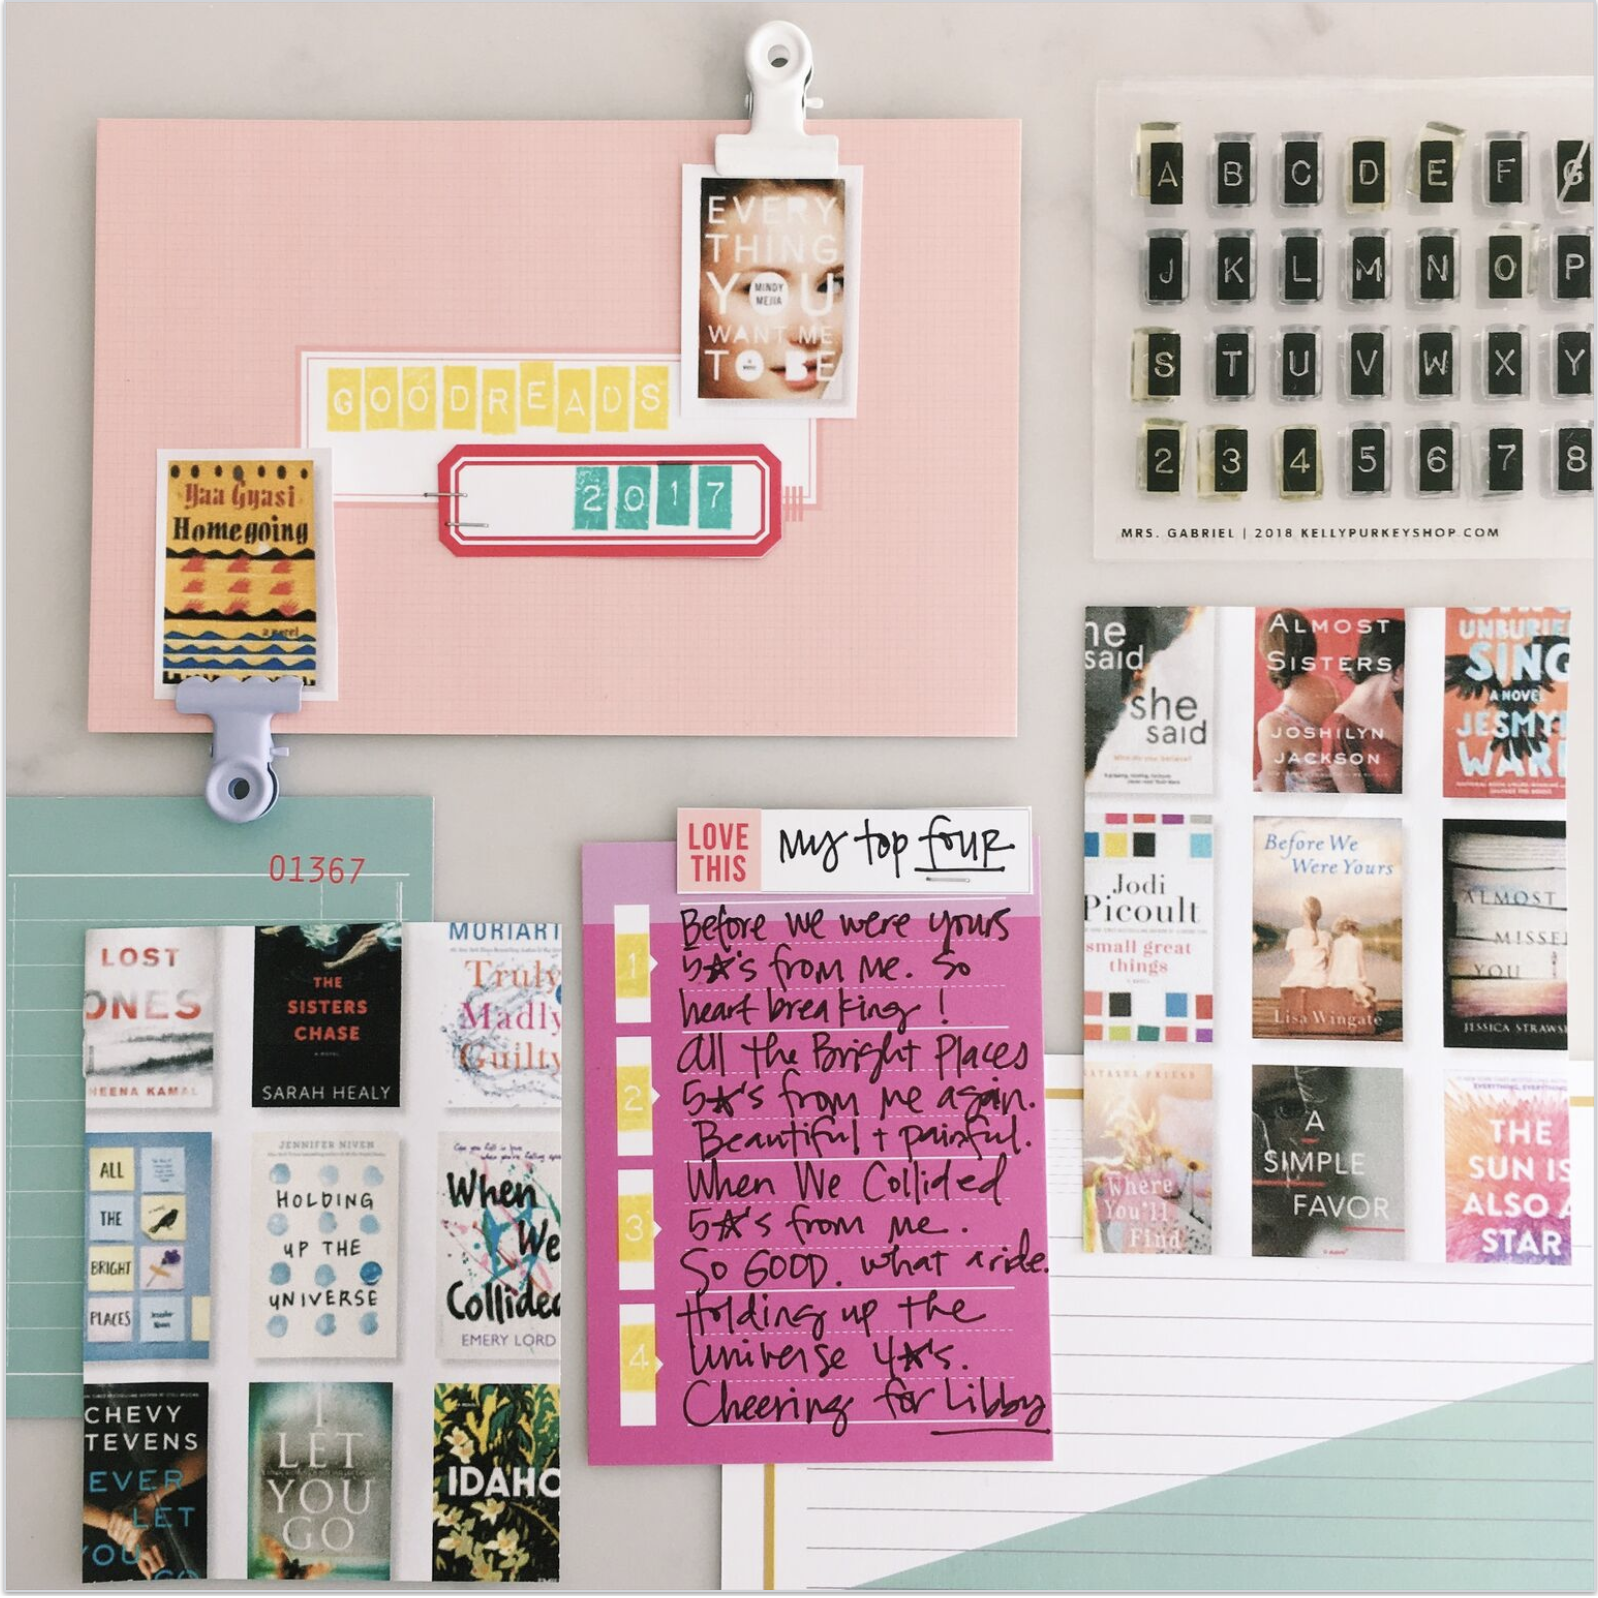 EVERY
THING
YOU
MINDY
MEJIA
WANT ME
TO BE
GOODREADS
2017
Yaa Gyasi
Homegoing
a novel
A B C D E F G
J K L M N O P
S T U V W X Y
2 3 4 5 6 7 8
MRS. GABRIEL | 2018 KELLYPURKEYSHOP.COM
he
said
she
said
Who do you believe?
ALMOST
SISTERS
JOSHILYN
JACKSON
UNBURIE
SING
A NOVEL
JESMY
WAR
Jodi
Picoult
small great
things
Before We
Were Yours
Lisa Wingate
ALMOST
MISSE
YOU
JESSICA STRAWS
NATASHA FRIEND
Where
You'll
Find
A
SIMPLE
FAVOR
EVERYTHING, EVERYTHING
THE
SUN IS
ALSO A
STAR
01367
LOVE
THIS
My top four
1
Before we were yours
5☆'s from me. So
heart breaking!
2
All the Bright Places
5☆'s from me again.
Beautiful + painful.
3
When We Collided
5☆'s from me.
So GOOD. what a ride.
4
Holding up the
Universe 4☆'s.
Cheering for Libby
LOST
ONES
HEENA KAMAL
THE
SISTERS
CHASE
A NOVEL
SARAH HEALY
MORIART
Truly
Madly
Guilty
ALL
THE
BRIGHT
PLACES
Jennifer
Niven
JENNIFER NIVEN
HOLDING
UP THE
UNIVERSE
Can you fall in love
when you're falling apart
When
We
Collided
EMERY LORD
CHEVY
TEVENS
EVER
LET
YOU
GO
I
LET
YOU
GO
IDAHO